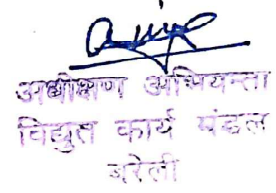 अधीक्षण अभियन्ता
विद्युत कार्य मंडल
बरेली